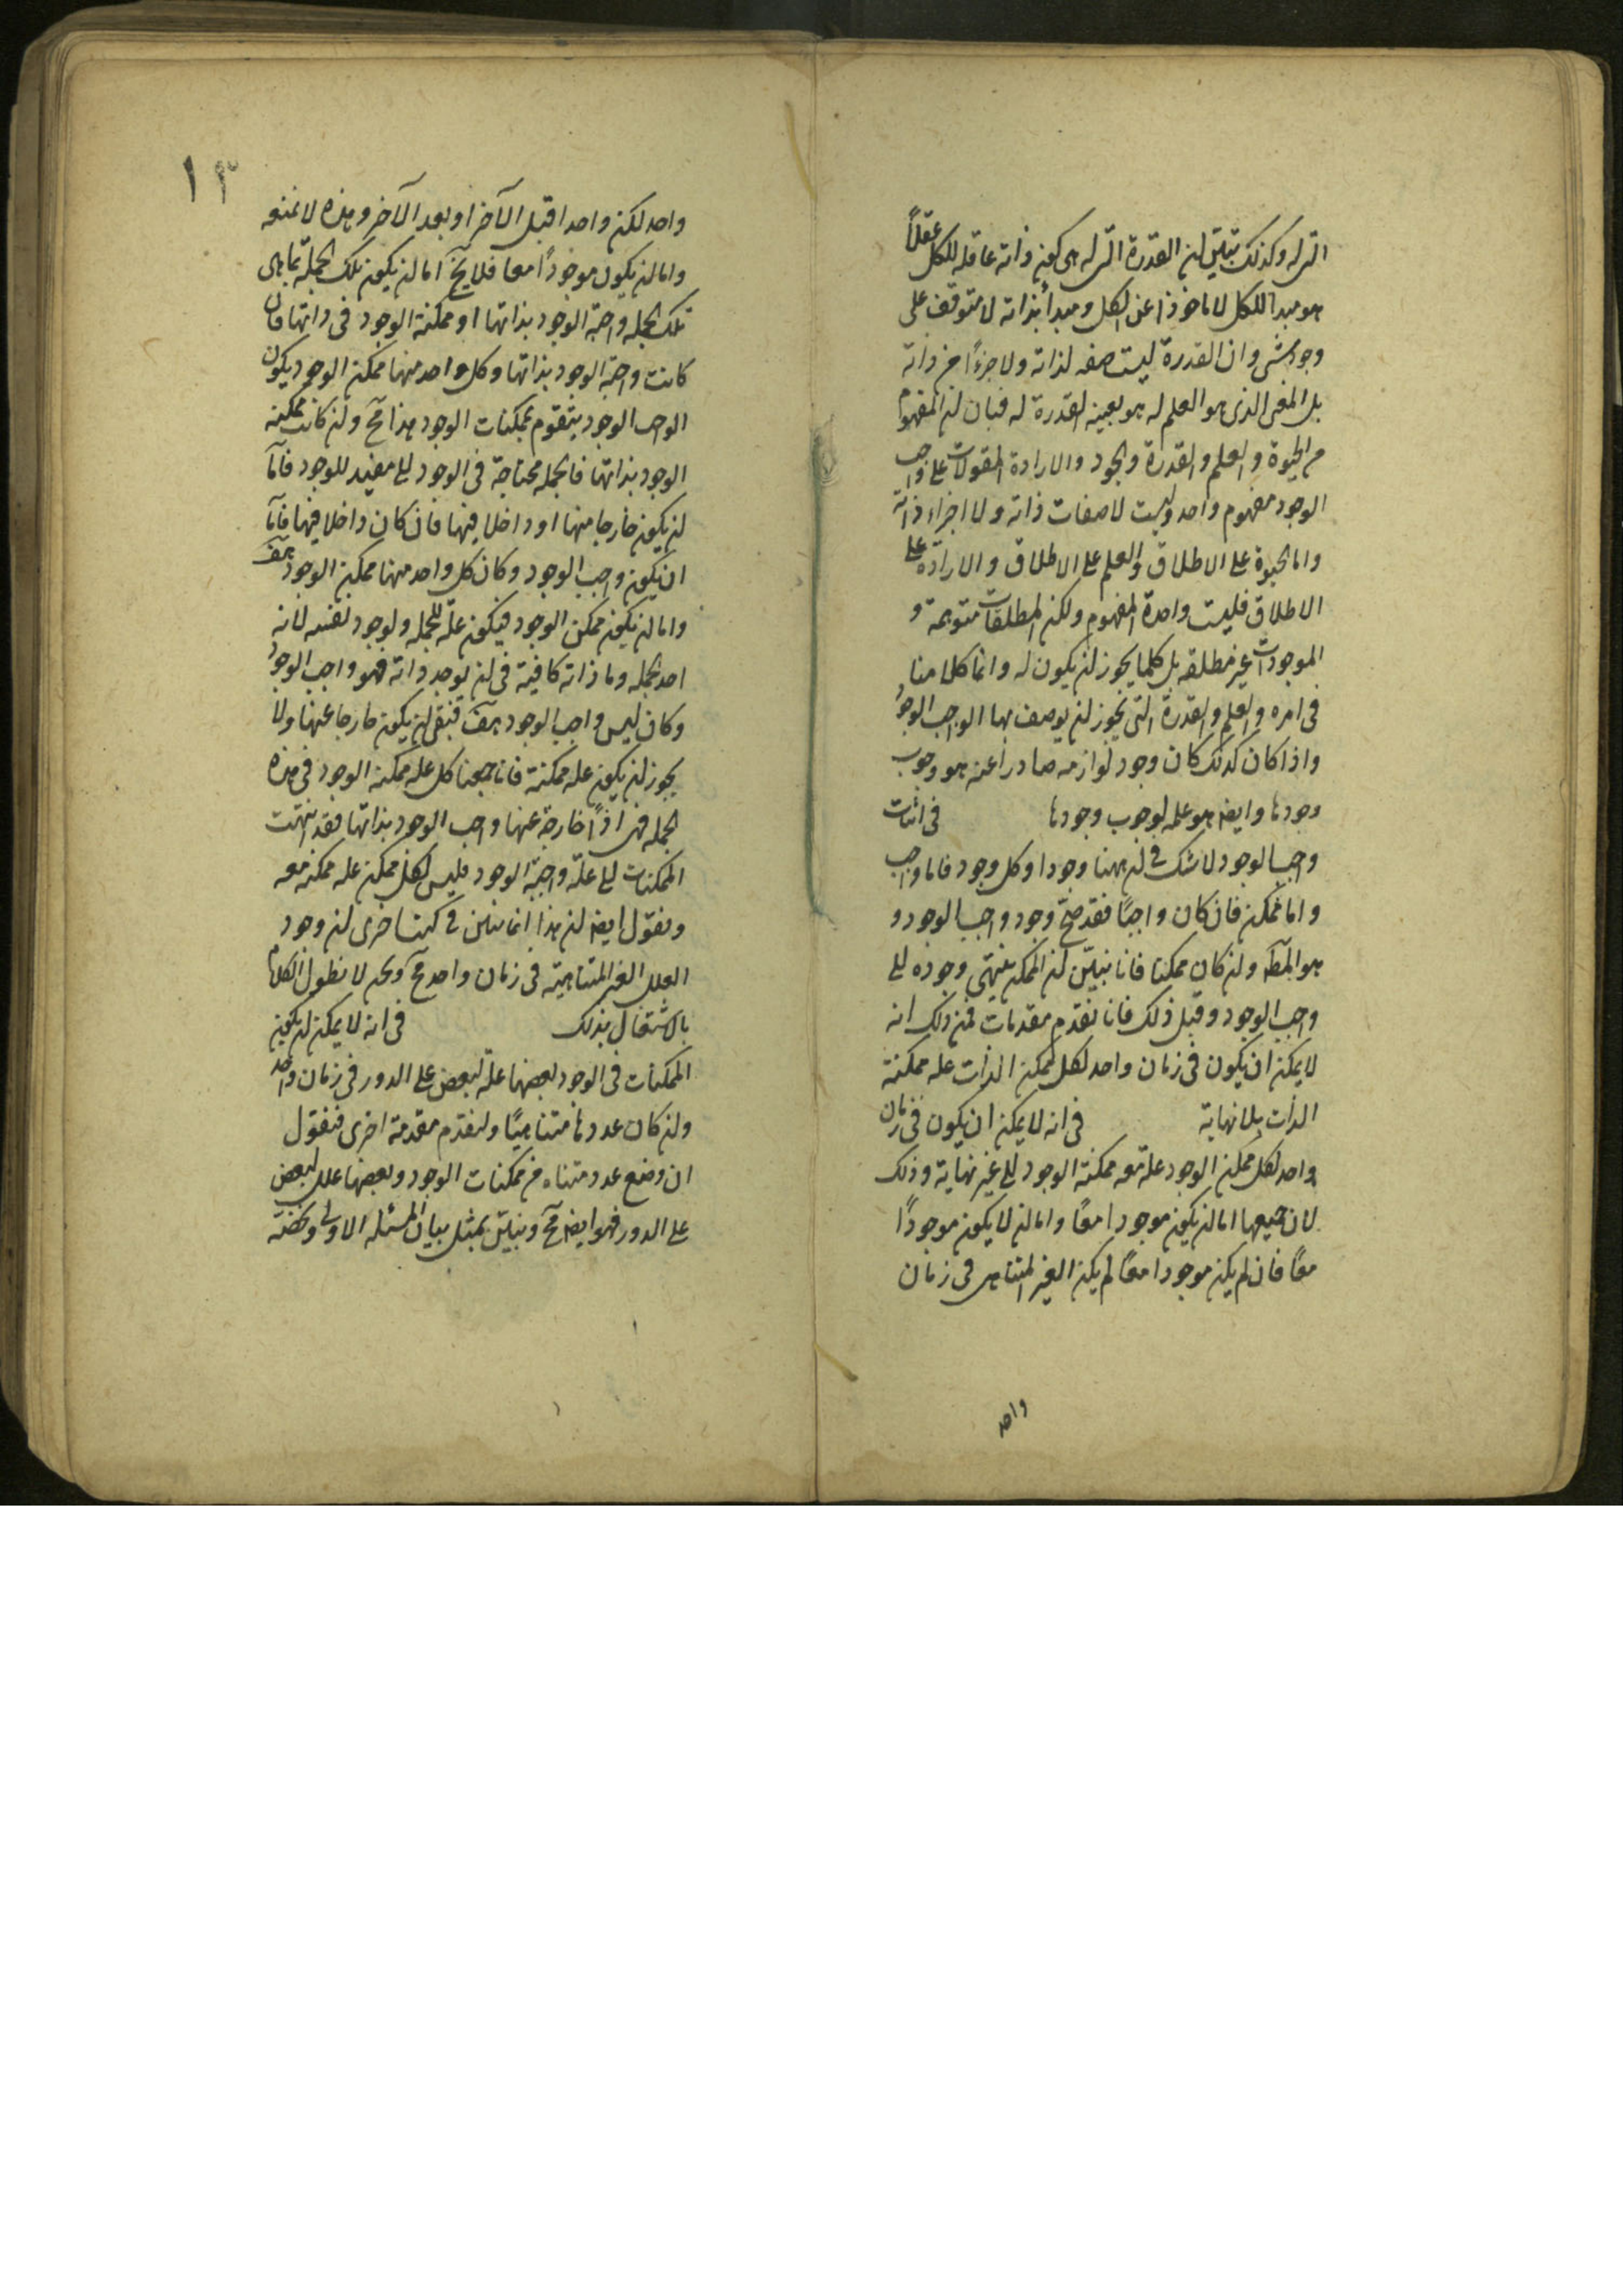 التى له وكذلك تبين ان القدرة التى له هى كون ذاته عاقله للكل عقلاً
هو مبدا للكل لا ماخوذا عن الكل ومبدأ بذاته لا متوقف على
وجود شئ وان القدرة ليست صفه لذاته ولا جزءاً من ذاته
بل المعنى الذى هو العلم له هو بعينه القدرة له فبان ان المفهوم
من الحيوة والعلم والقدرة والجود والارادة المقولات على واجب
الوجود مفهوم واحد وليست لا صفات ذاته ولا اجزاء ذاته
واما الحيوة على الاطلاق والعلم على الاطلاق والارادة على
الاطلاق فليست واحدة المفهوم ولكن المطلقات متوهمة و
الموجودات غير مطلقه بل كلما يجوز ان يكون له وانما كلامنا
فى امره والعلم والقدرة التى يجوز ان يوصف بها الواجب الوجود
واذا كان كذلك كان وجود لوازمه صادرا عنه هو وجوب
وجودها وايضا هو علمه لوجوب وجودها فى اثبات
واجب الوجود لا شك فى ان ههنا وجودا وكل وجود فاما واجب
واما ممكن فان كان واجبًا فقد صحّ وجود واجب الوجود و
هو المط وان كان ممكنا فانا نبيّن ان الممكن ينتهى وجوده الى
واجب الوجود وقبل ذلك فانا نقدم مقدمات فمن ذلك انه
لا يمكن ان يكون فى زمان واحد لكل ممكن الذات علة ممكنة
الذات بلا نهاية فى انه لا يمكن ان يكون فى زمان
واحد لكل ممكن الوجود علة معه ممكنة الوجود الى غير نهاية وذلك
لان جميعها اما ان يكون موجودا معًا واما ان لا يكون موجودًا
معًا فان لم يكن موجودا معًا لم يكن الغير المتناهى فى زمان
واحد
١٣
واحد لكن واحدا قبل الآخر او بعد الآخر وهذه لا نمنعه
واما ان يكون موجودًا معا فلا يخ اما ان يكون تلك الجملة بما هى
تلك الجملة واجبة الوجود بذاتها او ممكنة الوجود فى ذاتها فان
كانت واجبة الوجود بذاتها وكل واحد منها ممكن الوجود يكون
الواجب الوجود يتقوم بممكنات الوجود هذا مح وان كانت ممكنه
الوجود بذاتها فالجملة محتاجة فى الوجود الى مفيد للوجود فاما
ان يكون خارجا منها او داخلا فيها فان كان داخلا فيها فاما
ان يكون واجب الوجود وكان كل واحد منها ممكن الوجود هف
واما ان يكون ممكن الوجود فيكون علة للجملة ولوجود نفسه لانه
احد الجملة وما ذاته كافية فى ان توجد ذاته فهو واجب الوجود
وكان ليس واجب الوجود هف فبقى ان يكون خارجا عنها ولا
يجوز ان يكون علة ممكنة فانا جمعنا كل علة ممكنة الوجود فى هذه
الجملة فهى اذًا خارجة عنها واجب الوجود بذاتها فقد انتهت
الممكنات الى علة واجبة الوجود فليس لكل ممكن علة ممكنة معه
ونقول ايضا ان هذا انما نبين فى كتب اخرى ان وجود
العلل الغير المتناهية فى زمان واحد مح ونحن لا نطول الكلام
بالاشتغال بذلك فى انه لا يمكن ان يكون
الممكنات فى الوجود بعضها علة لبعض على الدور فى زمان واحد
وان كان عددها متناهيًا ولنقدم مقدمة اخرى فنقول
ان وضع عدد متناه من ممكنات الوجود وبعضها علل لبعض
على الدور فهو ايضا مح ونبين بمثل بيان المسئلة الاولى وتخصه